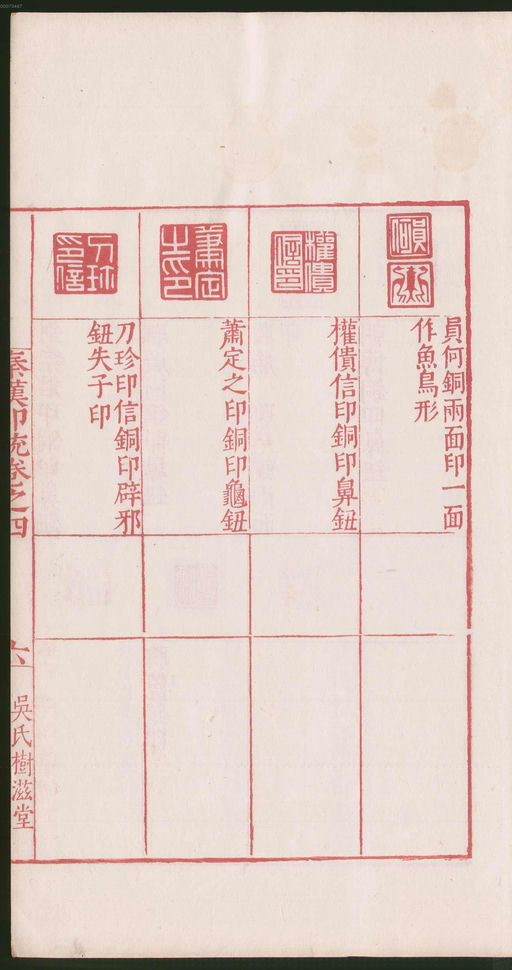 員何銅兩面印一面
作魚鳥形
權僓信印銅印鼻鈕
蕭定之印銅印龜鈕
刀珍印信銅印辟邪
鈕失子印
秦漢印統卷之四
六
吳氏樹滋堂
00073447